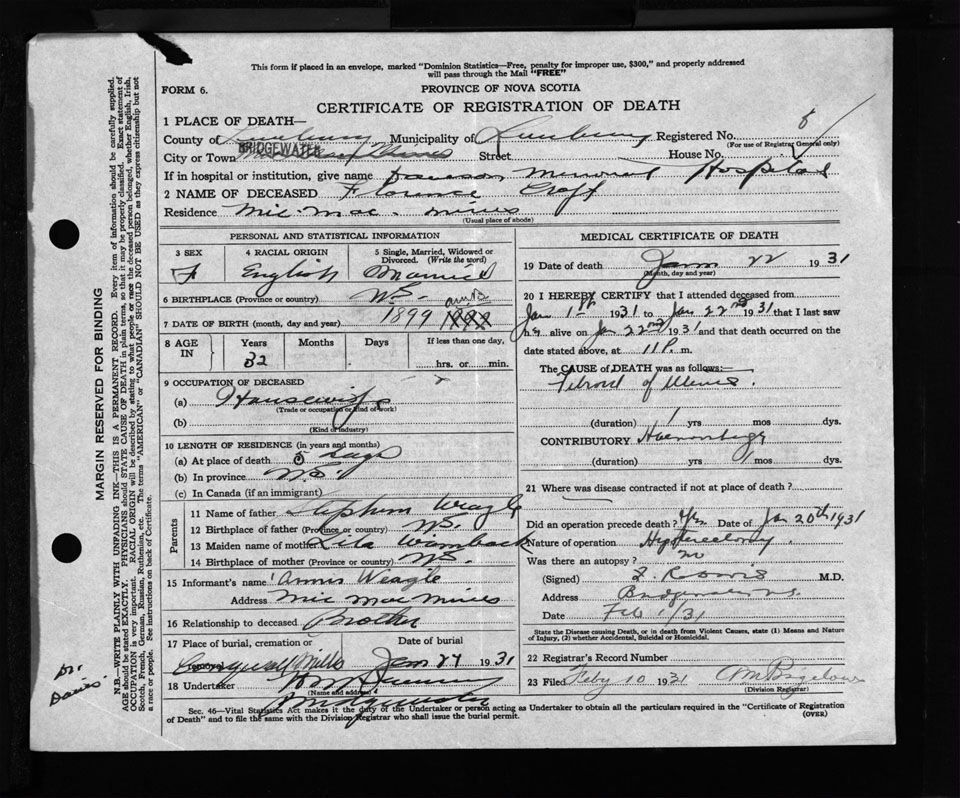 This form if placed in an envelope, marked "Dominion Statistics—Free, penalty for improper use, $300," and properly addressed
will pass through the Mail "FREE"
FORM 6.
PROVINCE OF NOVA SCOTIA
CERTIFICATE OF REGISTRATION OF DEATH
1 PLACE OF DEATH—
County of Lunenburg Municipality of Lunenburg Registered No. 6
(For use of Registrar General only)
City or Town BRIDGEWATER Street House No.
If in hospital or institution, give name Dawson Memorial Hospital
2 NAME OF DECEASED Florence Croft
Residence Mic-Mac. Mines
(Usual place of abode)
PERSONAL AND STATISTICAL INFORMATION
3 SEX 4 RACIAL ORIGIN 5 Single, Married, Widowed or
Divorced. (Write the word)
F English Married
6 BIRTHPLACE (Province or country) N.S.
7 DATE OF BIRTH (month, day and year) 1899
8 AGE IN Years Months Days If less than one day,
32 hrs. or min.
9 OCCUPATION OF DECEASED
(a) Housewife
(Trade or occupation or kind of work)
(b)
(Kind of industry)
10 LENGTH OF RESIDENCE (in years and months)
(a) At place of death 5 days
(b) In province N.S.
(c) In Canada (if an immigrant)
Parents
11 Name of father Stephen Weagle
12 Birthplace of father (Province or country) N.S.
13 Maiden name of mother Lila Wamback
14 Birthplace of mother (Province or country) N.S.
15 Informant's name Annis Weagle
Address Mic Mac Mines
16 Relationship to deceased Brother
17 Place of burial, cremation or Date of burial
Mills Jan 27 1931
18 Undertaker
(Name and address)
MEDICAL CERTIFICATE OF DEATH
19 Date of death Jan 22 1931
(Month, day and year)
20 I HEREBY CERTIFY that I attended deceased from
Jan 1st 1931 to Jan 22nd 1931 that I last saw
her alive on Jan 22nd 1931 and that death occurred on the
date stated above, at 11 P. m.
The CAUSE of DEATH was as follows:—
Fibroid of Uterus.
(duration) 1 yrs mos dys.
CONTRIBUTORY Haemorrhage
(duration) yrs 1 mos dys.
21 Where was disease contracted if not at place of death?
Did an operation precede death? Yes Date of Jan 20th 1931
Nature of operation Hysterectomy.
Was there an autopsy? no
(Signed) M.D.
Address Bridgewater N.S.
Date Feb 1/31
State the Disease causing Death, or in death from Violent Causes, state (1) Means and Nature
of Injury, (2) whether Accidental, Suicidal or Homicidal.
22 Registrar's Record Number
23 Filed Feby 10 1931
(Division Registrar)
Sec. 46—Vital Statistics Act makes it the duty of the Undertaker or person acting as Undertaker to obtain all the particulars required in the "Certificate of Registration
of Death" and to file the same with the Division Registrar who shall issue the burial permit.
(OVER)
MARGIN RESERVED FOR BINDING
N.B.—WRITE PLAINLY WITH UNFADING INK—THIS IS A PERMANENT RECORD. Every item of information should be carefully supplied.
AGE should be stated EXACTLY. PHYSICIANS should STATE CAUSE OF DEATH in plain terms, so that it may be properly classified. Exact statement of
OCCUPATION is very important. RACIAL ORIGIN will be described by stating to what people or race the deceased person belonged, whether English, Irish,
Scotch, French, German, Russian, Ruthenian, etc. The terms "AMERICAN" or "CANADIAN" SHOULD NOT BE USED as they express citizenship but not
a race or people. See instructions on back of Certificate.
Dr.
Davis.